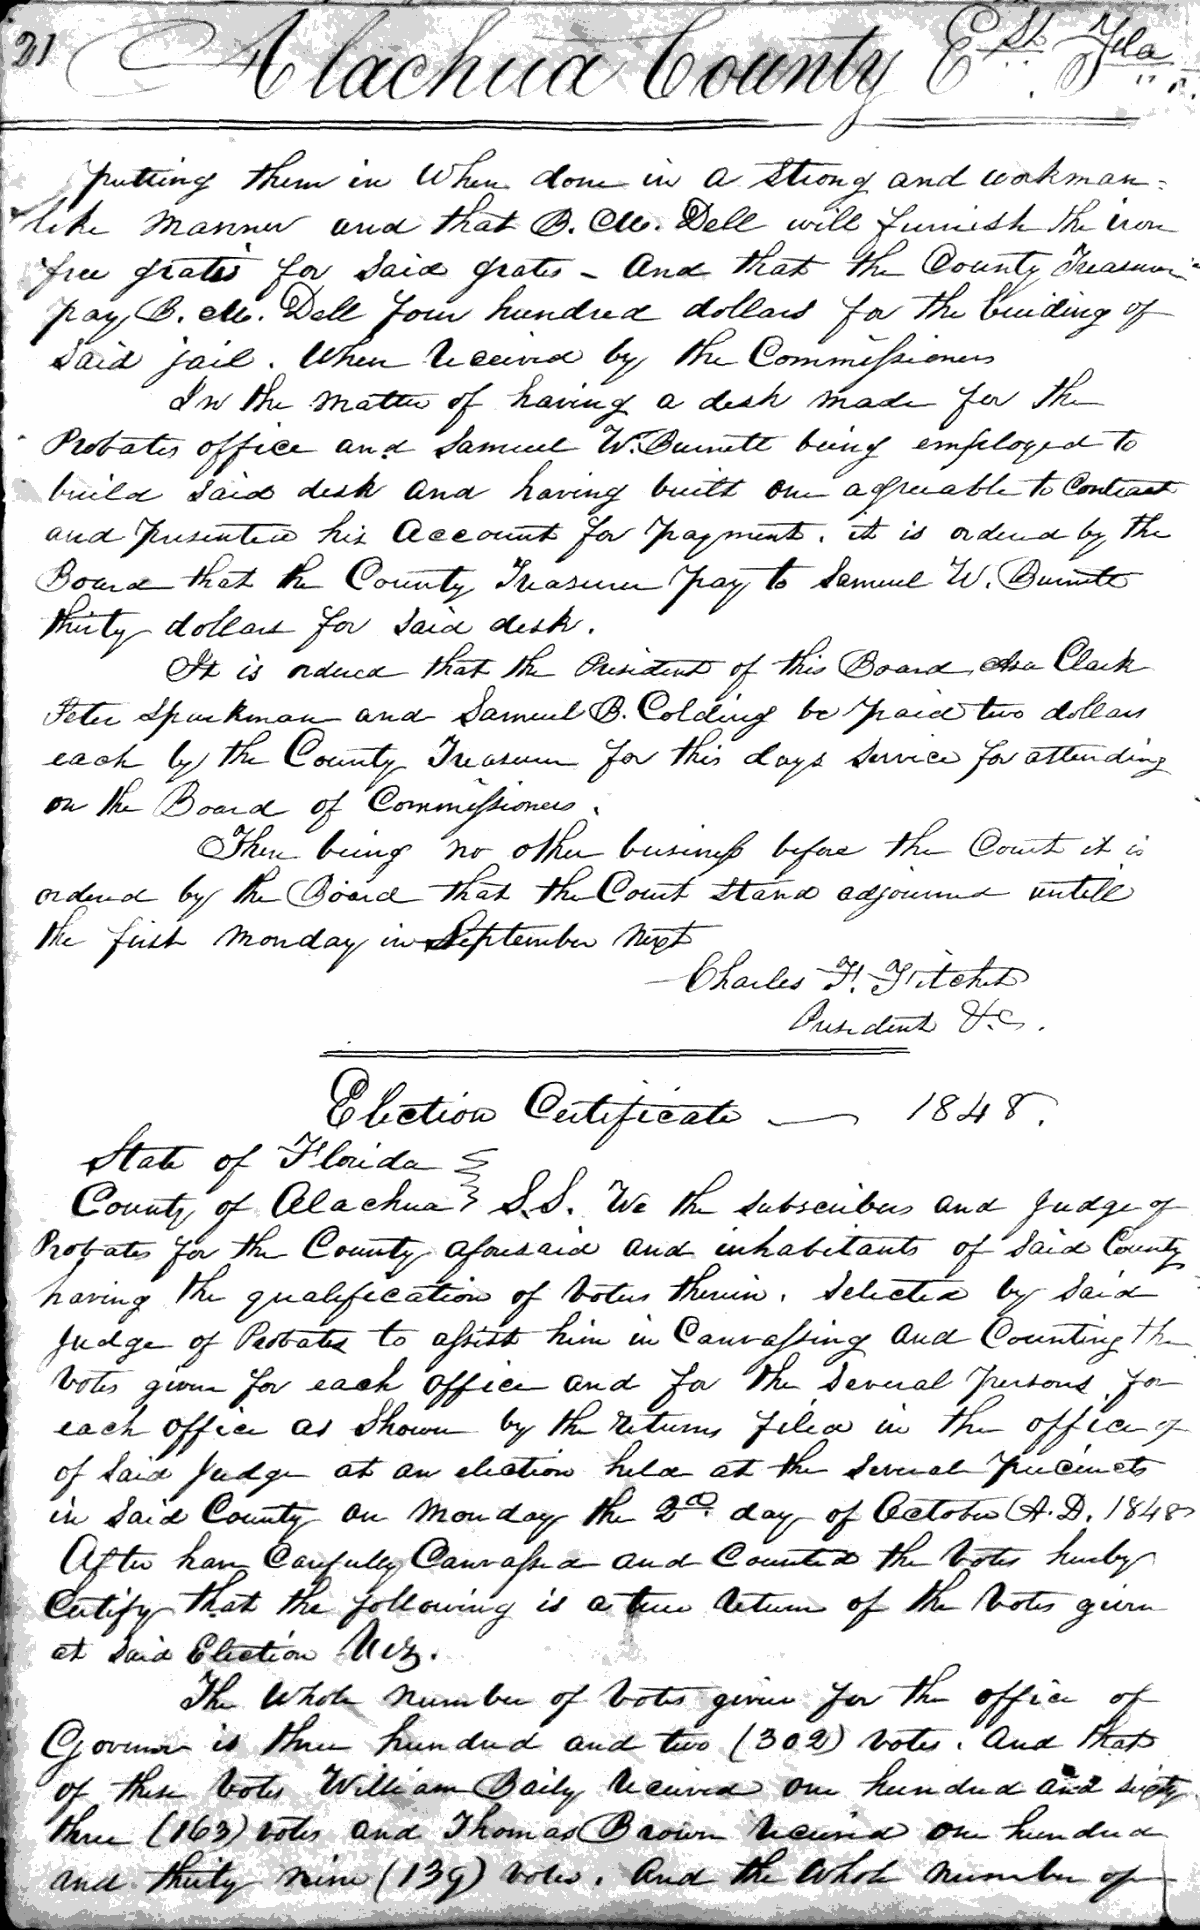 21 Alachua County E. St. Fla
putting them in When done in a Strong and workman=
like Manner and that B. M. Dell will furnish the iron
free gratis for Said grates - And that the County Treasurer
pay B. M. Dell four hundred dollars for the building of
Said jail. When Received by the Commissioners
In the Matter of having a desk made for the
Probates office and Samuel W. Burnett being employed to
build Said desk and having built one agreeable to Contract
and presented his Account for payment. it is ordered by the
Board that the County Treasurer pay to Samuel W. Burnett
thirty dollars for Said desk.
It is ordered that the President of this Board, Asa Clark
Peter Sparkman and Samuel B. Colding be paid two dollars
each by the County Treasurer for this days Service for attending
on the Board of Commissioners.
There being no other business before the Court it is
ordered by the Board that the Court Stand adjourned untill
the first Monday in September Next
Charles F. Fitchet
President &c.
Election Certificate — 1848.
State of Florida
County of Alachua } S.S. We the Subscribers and Judge of
Probates for the County aforesaid and inhabitants of Said County
having the qualification of Voters therein. Selected by Said
Judge of Probates to assist him in Canvassing and Counting the
Votes given for each office and for the Several persons for
each office as Shown by the returns filed in the office of
of Said Judge at an election held at the Several precincts
in Said County on Monday the 2nd. day of October A.D. 1848
After have Carefully Canvassed and Counted the Votes hereby
Certify that the following is a true return of the Votes given
at Said Election Viz.
The Whole number of Votes given for the office of
Governor is three hundred and two (302) votes. And that
of these Votes William Baily Received one hundred and sixty
three (163) votes and Thomas Brown Received one hundred
and thirty nine (139) votes. And the Whole number of